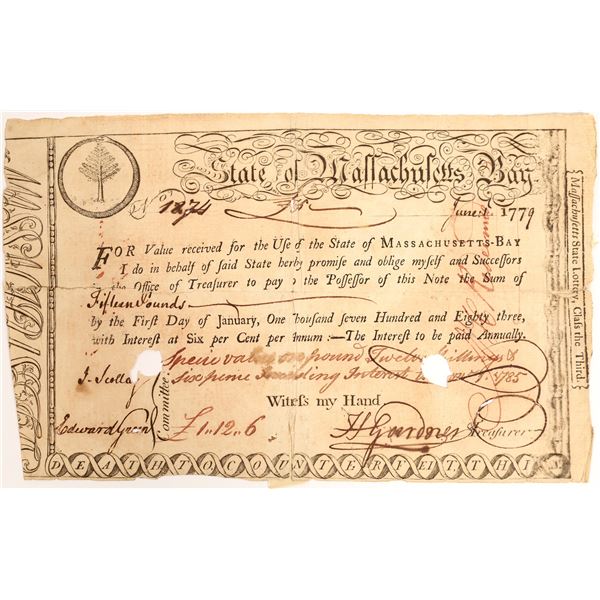 State of Maſſachuſetts Bay
No 1874 June 1. 1779
FOR Value received for the Uſe of the State of MASSACHUSETTS-BAY
I do in behalf of ſaid State herby promiſe and oblige myſelf and Succeſſors
in the Office of Treaſurer to pay the Poſſeſſor of this Note the Sum of
Fifteen Pounds
by the Firſt Day of January, One thouſand ſeven Hundred and Eighty three,
with Intereſt at Six per Cent per Annum:—The Intereſt to be paid Annually.
Specie value one pound Twelve Shillings &
Sixpence Including Intereſt to Jany 1. 1785
J. Scollay
Committee
Edward Green
£1..12..6
Witneſs my Hand
H Gardner Treaſurer
DEATH TO COUNTERFEIT THIS
Maſſachuſetts State Lottery, Claſs the Third.